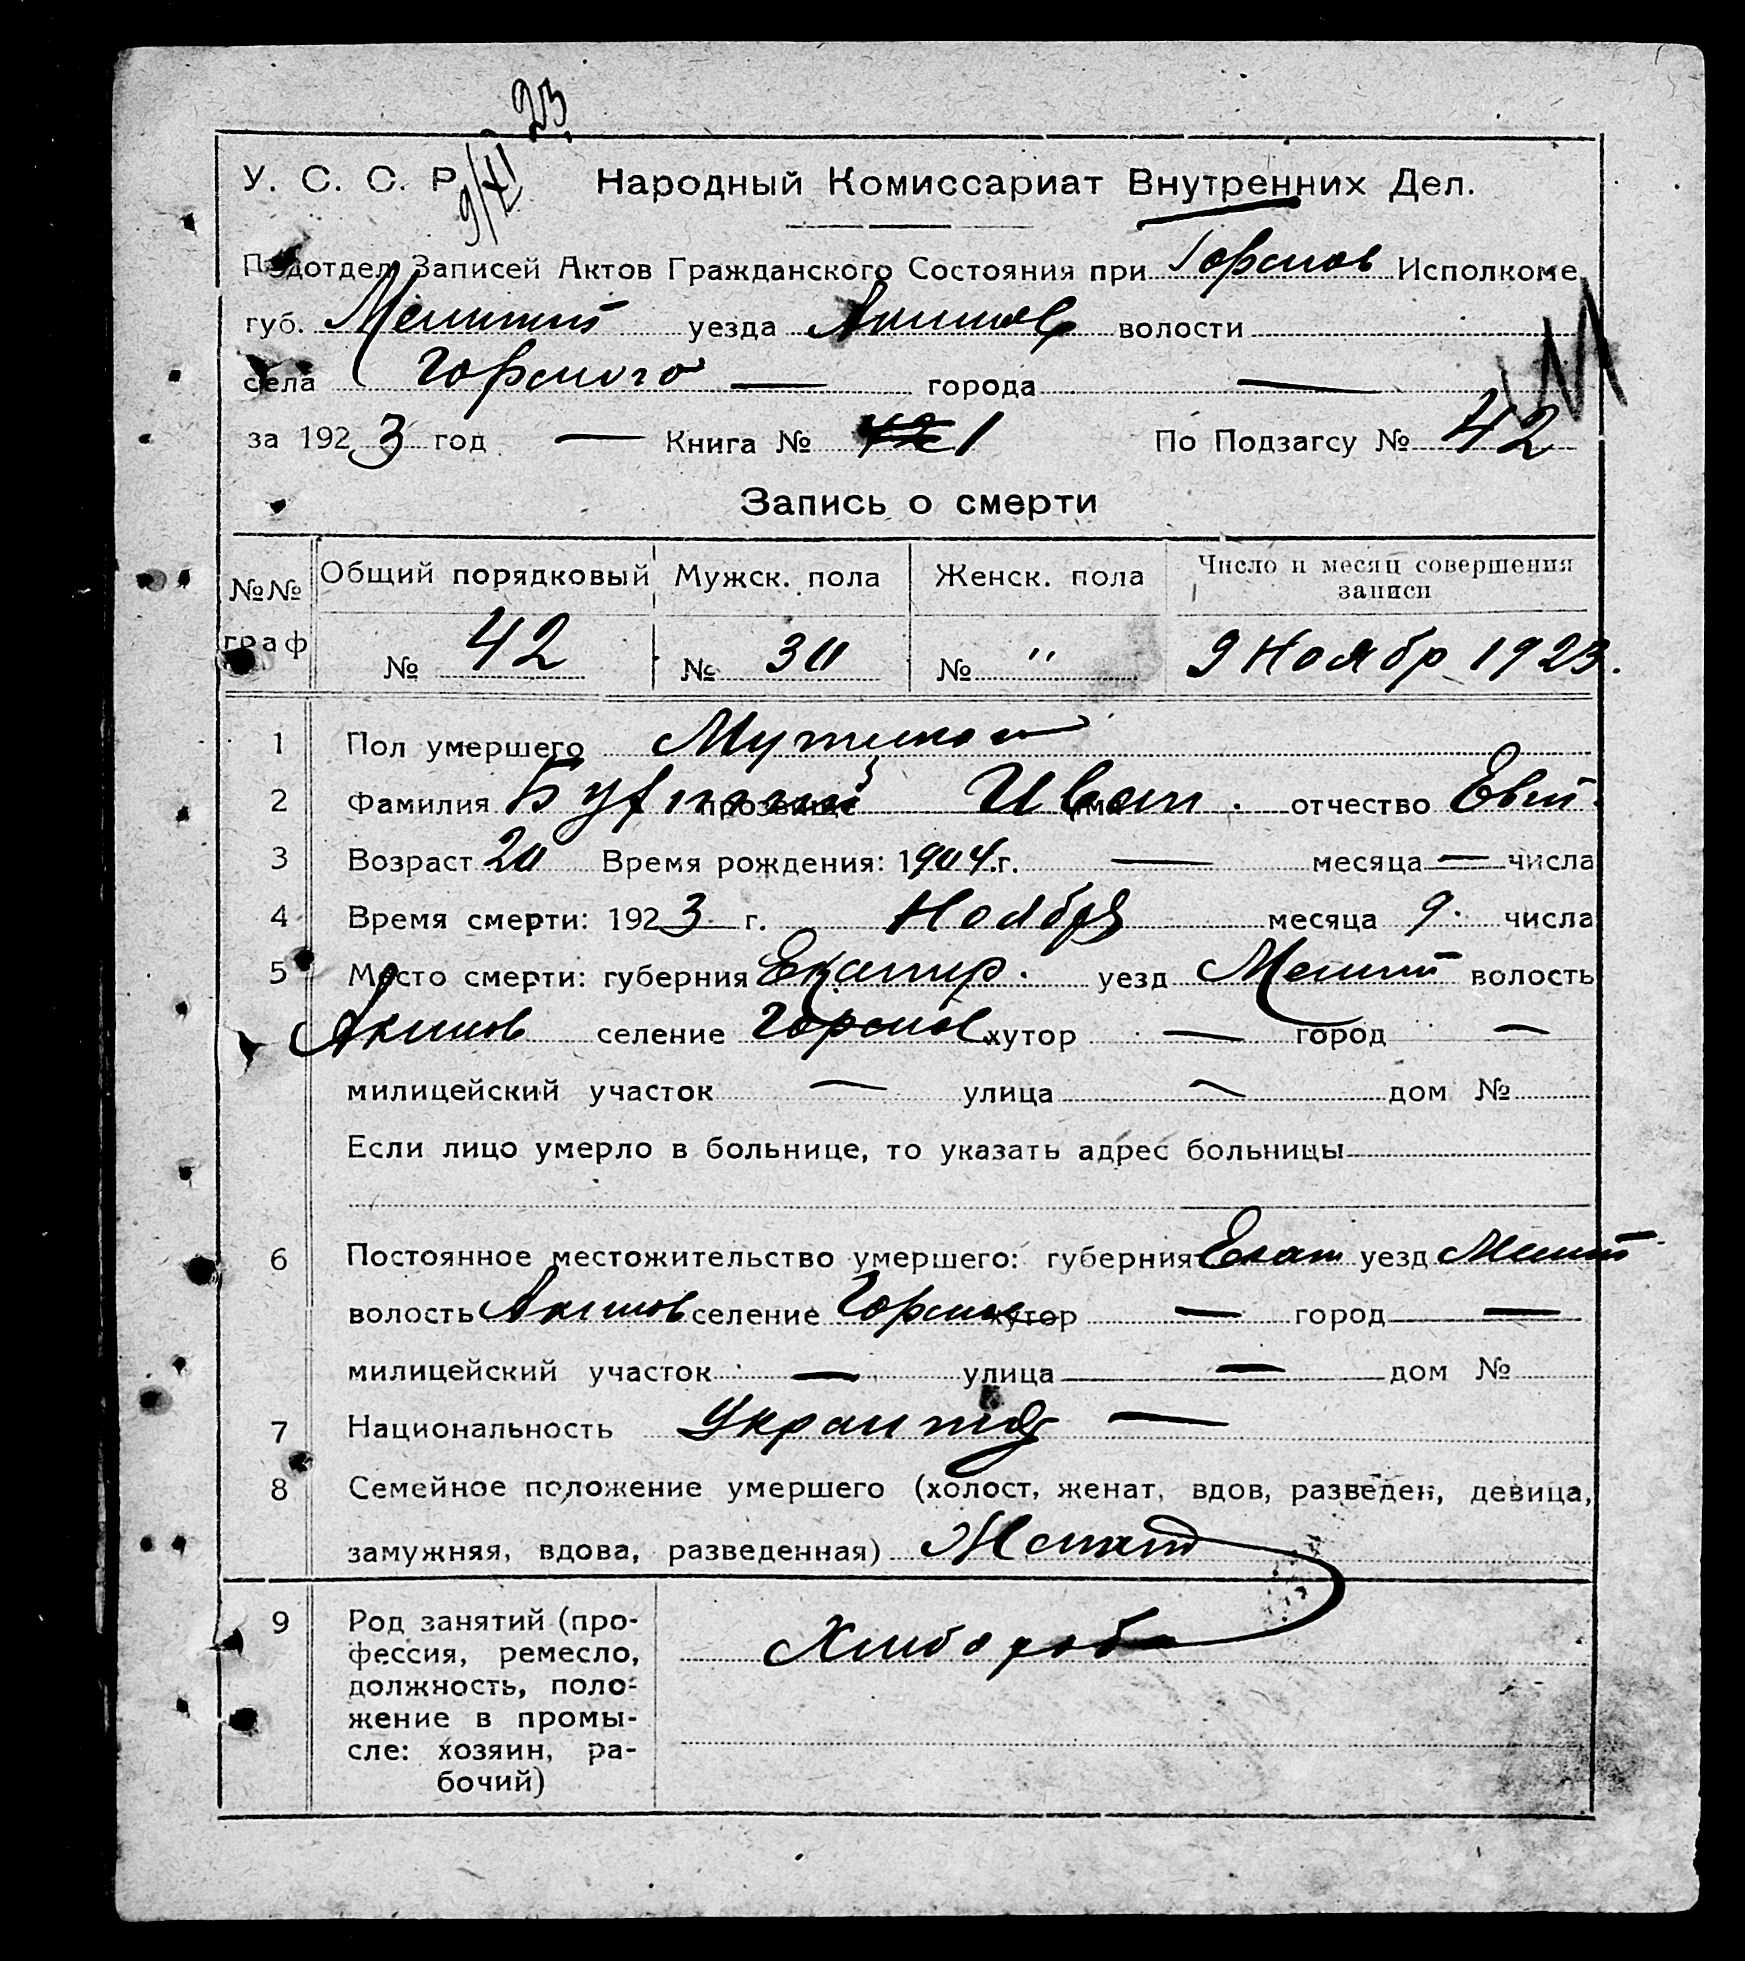 9/XI 23.
У. С. С. Р. Народный Комиссариат Внутренних Дел.
Подотдел Записей Актов Гражданского Состояния при Горснов Исполкоме
губ. Мелитоп уезда Акимов волости
села Горсного — города —
за 1923 год — Книга № 1 По Подзагсу № 42
Запись о смерти
№№ граф Общий порядковый Мужск. пола Женск. пола Число и месяц совершения записи
№ 42 № 30 № " 9 Ноябр 1923.
1 Пол умершего Мужской
2 Фамилия прозвище Иван имя отчество Евт.
3 Возраст 20 Время рождения: 1904 г. — месяца — числа
4 Время смерти: 1923 г. Ноября месяца 9 числа
5 Место смерти: губерния Екатер. уезд Мелит волость
Акимов селение хутор — город —
милицейский участок — улица — дом №
Если лицо умерло в больнице, то указать адрес больницы
6 Постоянное местожительство умершего: губерния Екат уезд Мелит
волость Акимов селение хутор — город —
милицейский участок — улица — дом №
7 Национальность —
8 Семейное положение умершего (холост, женат, вдов, разведен, девица,
замужняя, вдова, разведенная) Женат
9 Род занятий (про-
фессия, ремесло,
должность, поло-
жение в промы-
сле: хозяин, ра-
бочий)
Хлебороб